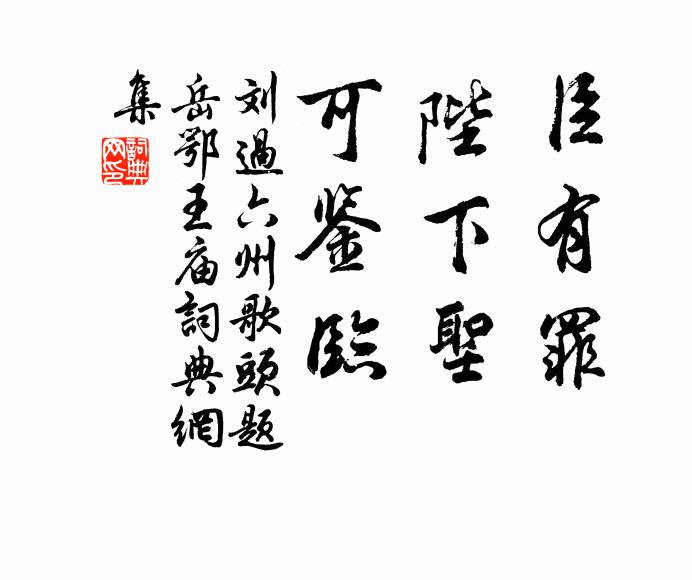 臣有罪
陛下聖
可鉴臨
刘過六州歌頭題
岳鄂王庙詞典網
集
詞典
网印